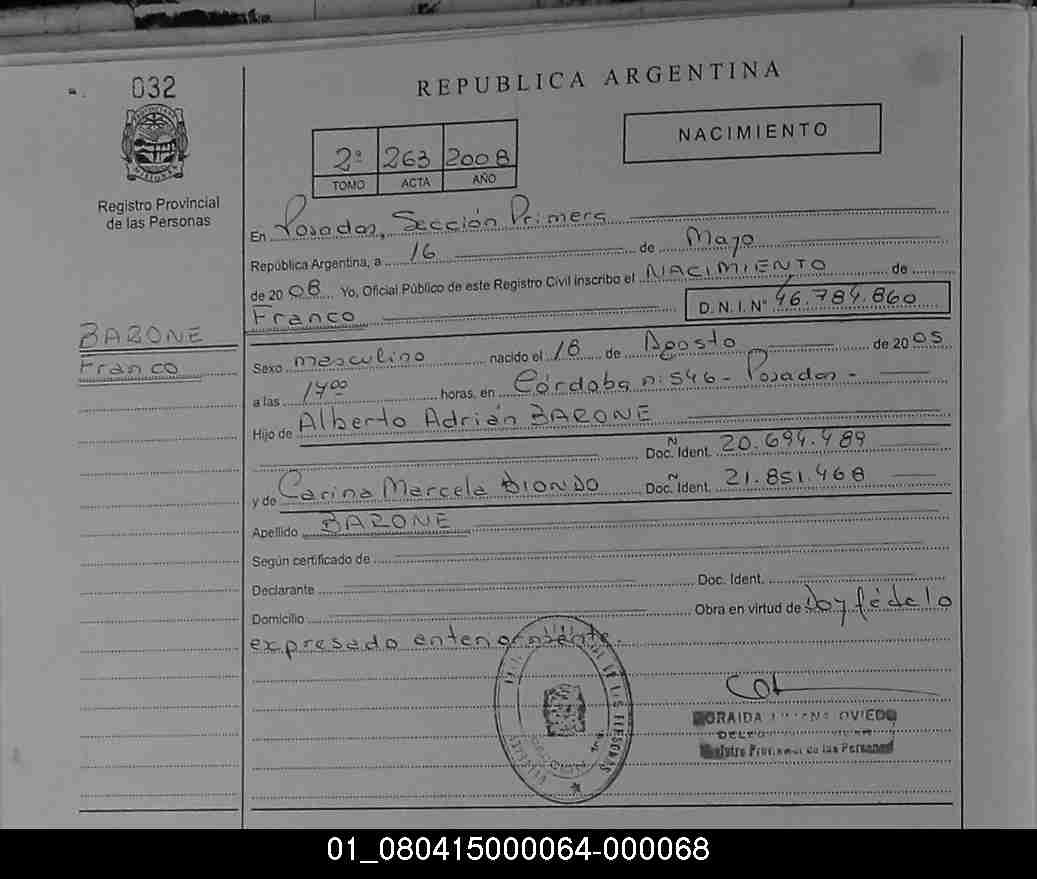 032
REPUBLICA ARGENTINA
NACIMIENTO
2º 263 2008
TOMO ACTA AÑO
Registro Provincial
de las Personas
En Posadas, Sección Primera
República Argentina, a 16 de Mayo
de 2008 Yo, Oficial Público de este Registro Civil inscribo el NACIMIENTO de
Franco D.N.I. Nº 46.784.860
BARONE
Franco
Sexo masculino nacido el 18 de Agosto de 2005
a las 17⁰⁰ horas, en Córdoba nº: 546 - Posadas -
Hijo de Alberto Adrián BARONE
Doc. Ident. Nº 20.694.489
y de Carina Marcela BIONDO Doc. Ident. Nº 21.851.468
Apellido BARONE
Según certificado de
Declarante Doc. Ident.
Domicilio Obra en virtud de Doy fé de lo
expresado
OVIEDO
Registro Provincial de las Personas
01_080415000064-000068